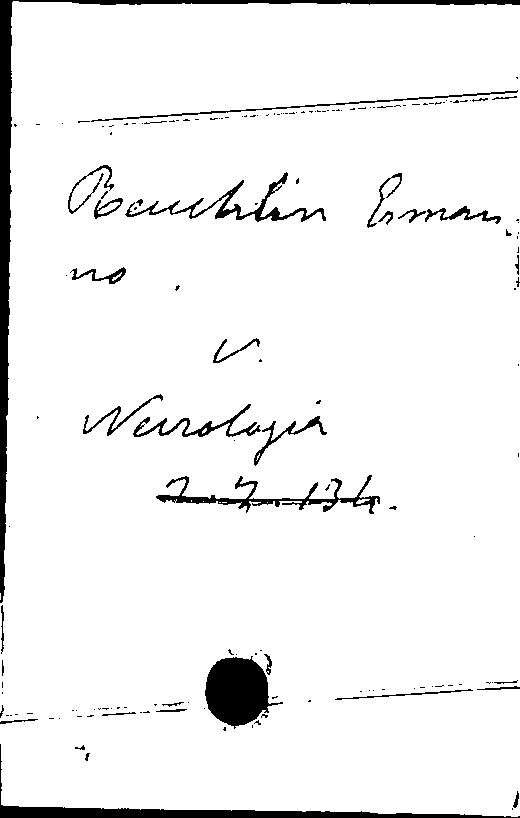 Raeuchlin Erman
no.
V.
Neurologia
7.7.134.